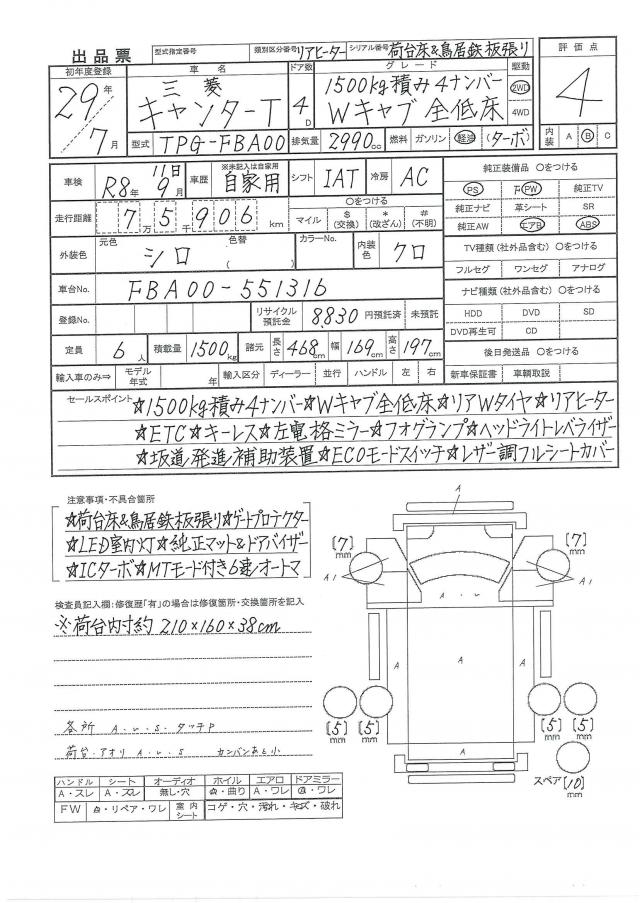 出品票 型式指定番号 類別区分番号 リアヒーター シリアル番号 荷台床&鳥居鉄板張り
評価点
初年度登録 車名 ドア数 グレード 駆動
29年 三菱 1500kg積み4ナンバー 2WD
7月 キャンターT 4D Wキャブ全低床 4WD
4
型式 TPG-FBA00 排気量 2990cc 燃料 ガソリン 軽油 (ターボ) 内装 A B C
車検 R8年 11日 9月 車歴 ※未記入は自家用 自家用 シフト IAT 冷房 AC
純正装備品 ○をつける
PS PW 純正TV
純正ナビ 革シート SR
純正AW エアB ABS
走行距離 7万5千906km ○をつける マイル $(交換) *(改ざん) #(不明)
外装色 元色 シロ 色替 ( ) カラーNo. 内装色 クロ
TV種類(社外品含む) ○をつける
フルセグ ワンセグ アナログ
車台No. FBA00-551316
ナビ種類(社外品含む) ○をつける
HDD DVD SD
DVD再生可 CD
登録No. リサイクル預託金 8,830円預託済 未預託
定員 6人 積載量 1500kg 諸元 長さ 468cm 幅 169cm 高さ 197cm
後日発送品 ○をつける
輸入車のみ⇒ モデル年式 年 輸入区分 ディーラー・並行 ハンドル 左・右 新車保証書 車輌取説
セールスポイント ☆1500kg積み4ナンバー☆Wキャブ全低床☆リアWタイヤ☆リアヒーター
☆ETC☆キーレス☆左電格ミラー☆フォグランプ☆ヘッドライトレベライザー
☆坂道発進補助装置☆ECOモードスイッチ☆レザー調フルシートカバー
注意事項・不具合箇所
☆荷台床&鳥居鉄板張り☆ゲートプロテクター
☆LED室内灯☆純正マット&ドアバイザー
☆ICターボ☆MTモード付き6速オートマ
検査員記入欄:修復歴「有」の場合は修復箇所・交換箇所を記入
※荷台内寸約 210×160×38cm
各所 A.U.S.タッチP
荷台.アオリ A.U.S カンバンあと小
ハンドル シート オーディオ ホイル エアロ ドアミラー
A・スレ A・スレ 無し・穴 A・曲り A・ワレ A・ワレ
FW A・リペア・ワレ 室内シート コゲ・穴・汚れ・キズ・破れ
A
[7]mm [7]mm
A1 A1
A・U
A A A
[5]mm [5]mm [5]mm [5]mm
A
スペア [10]mm